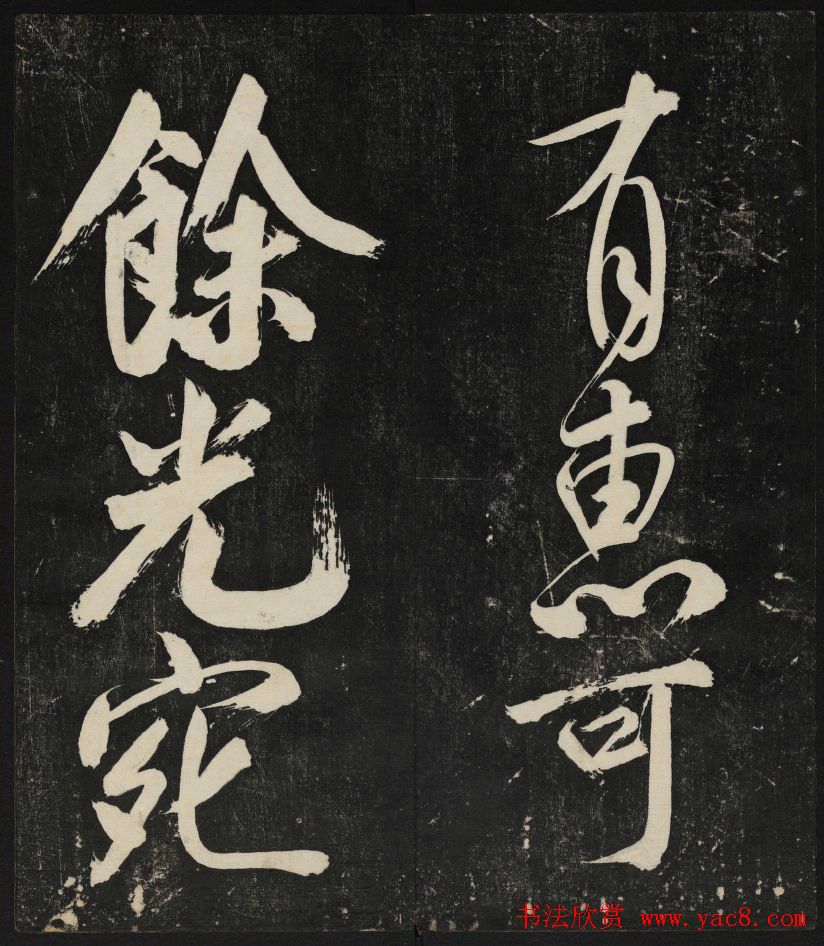 有惠可
餘光宛
书法欣赏 www.yac8.com